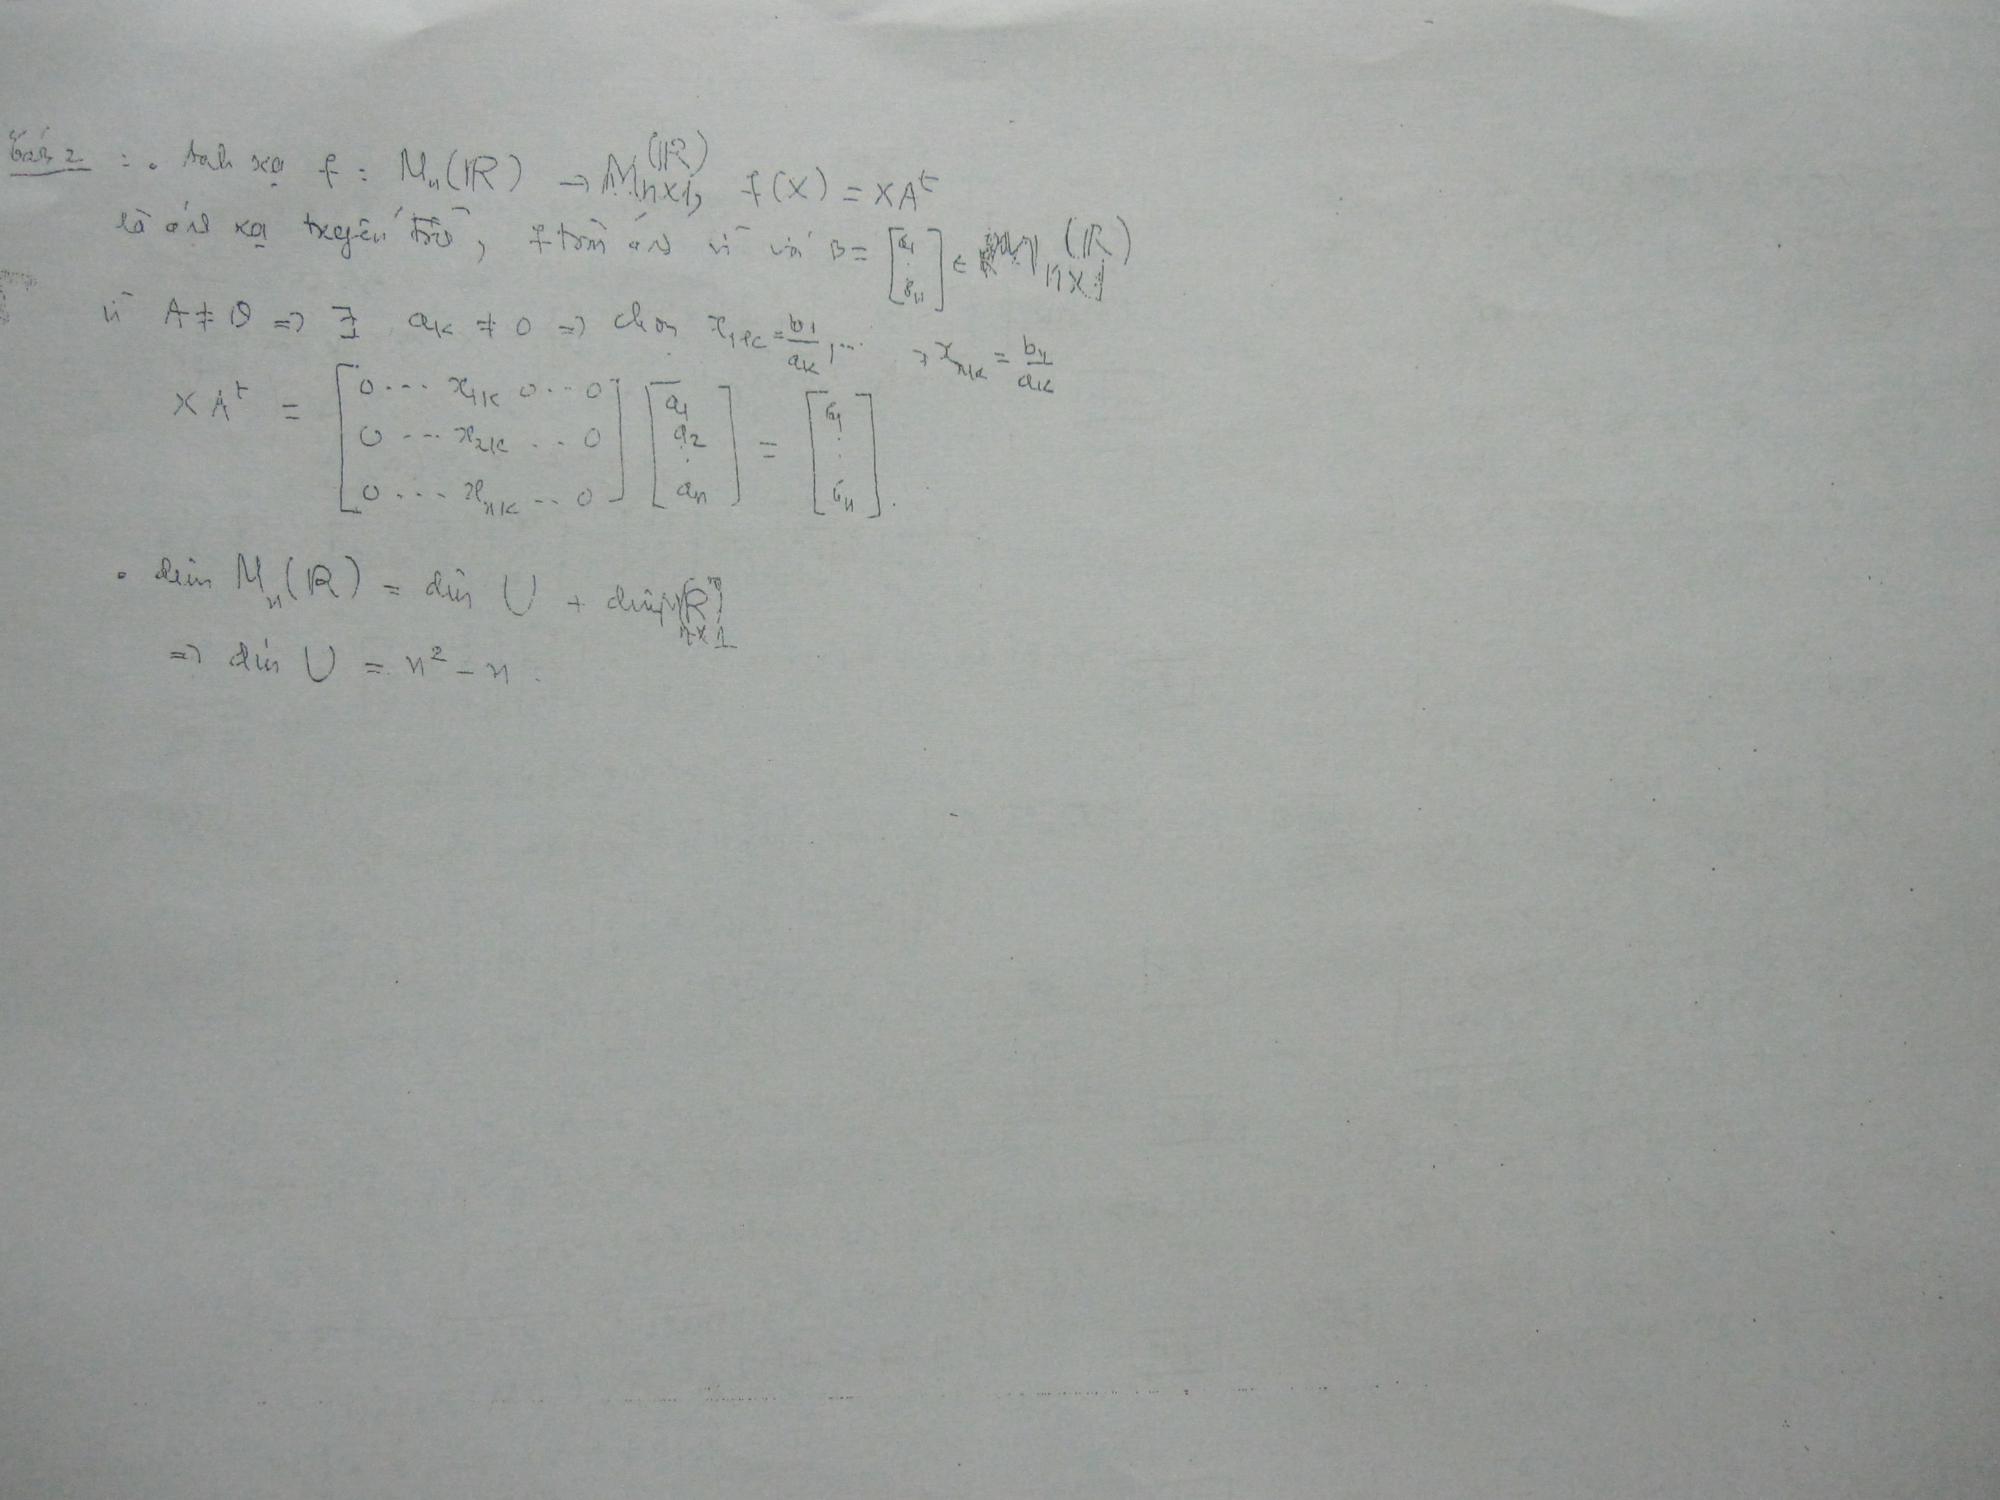 Bài 2 : . Ánh xạ f : Mₙ(ℝ) → Mₙₓ₁(ℝ), f(X) = XAᵗ
là ánh xạ tuyến tính, f toàn ánh vì với B = [b₁ ⋮ bₙ] ∈ Mₙₓ₁(ℝ)
vì A ≠ 0 ⇒ ∃ aₖ ≠ 0 ⇒ chọn x₁ₖ = b₁/aₖ, ... , xₙₖ = bₙ/aₖ
XAᵗ = [0 ... x₁ₖ 0 ... 0; 0 ... x₂ₖ ... 0; 0 ... xₙₖ ... 0] [a₁ a₂ ⋮ aₙ] = [b₁ ⋮ bₙ].
. dim Mₙ(ℝ) = dim U + dim M(ℝ)ₙₓ₁
⇒ dim U = n² - n .